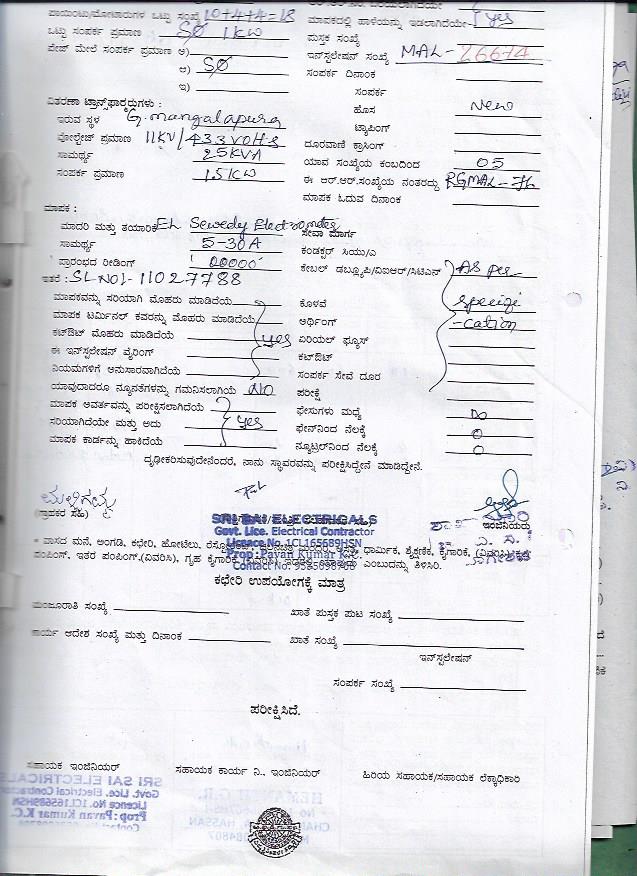 ಪಾಯಿಂಟು/ಮೋಟಾರುಗಳ ಒಟ್ಟು ಸಂಖ್ಯೆ 10+4+4=18
ಮಾಪಕದಲ್ಲಿ ಹಾಳೆಯನ್ನು ಇಡಲಾಗಿದೆಯೇ yes
ಒಟ್ಟು ಸಂಪರ್ಕ ಪ್ರಮಾಣ SØ 1KW
ಪುಸ್ತಕ ಸಂಖ್ಯೆ
ಪೇಜ್ ಮೇಲೆ ಸಂಪರ್ಕ ಪ್ರಮಾಣ ಅ)
ಇನ್‌ಸ್ಟಲೇಷನ್ ಸಂಖ್ಯೆ MAL-26674
ಆ) SØ
ಸಂಪರ್ಕ ದಿನಾಂಕ
ಇ)
ಸಂಪರ್ಕ
ವಿತರಣಾ ಟ್ರಾನ್ಸ್‌ಫಾರ್ಮರ್‍ರುಗಳು :
ಹೊಸ New
ಇರುವ ಸ್ಥಳ G.mangalapura
ಟ್ಯಾಪಿಂಗ್
ವೋಲ್ಟೇಜ್ ಪ್ರಮಾಣ 11KV/433VOHS
ದೂರವಾಣಿ ಕ್ರಾಸಿಂಗ್
ಸಾಮರ್ಥ್ಯ 25KVA
ಯಾವ ಸಂಖ್ಯೆಯ ಕಂಬದಿಂದ 05
ಸಂಪರ್ಕ ಪ್ರಮಾಣ 15KW
ಈ ಆರ್.ಆರ್.ಸಂಖ್ಯೆಯ ನಂತರದ್ದು
ಮಾಪಕ ಓದುವ ದಿನಾಂಕ
ಮಾಪಕ :
ಮಾದರಿ ಮತ್ತು ತಯಾರಿಕೆ EL Sewedy Electrometer
ಸೇವಾ ಮಾರ್ಗ
ಸಾಮರ್ಥ್ಯ 5-30A
ಕಂಡಕ್ಟರ್ ಸಿಯು/ಎ
ಪ್ರಾರಂಭದ ರೀಡಿಂಗ್ 00000
ಕೇಬಲ್ ಡಬ್ಲ್ಯೂಪಿ/ವಿಐಆರ್/ಸಿಟಿಎಸ್ As per
ಇತರೆ : SL NO1-11027788
ಮಾಪಕವನ್ನು ಸರಿಯಾಗಿ ಮೊಹರು ಮಾಡಿದೆಯೆ
ಕೊಳವೆ specifi
ಮಾಪಕ ಟರ್ಮಿನಲ್ ಕವರನ್ನು ಮೊಹರು ಮಾಡಿದೆಯೆ
ಅರ್ಥಿಂಗ್ -cation
ಕಟ್‌ಔಟ್ ಮೊಹರು ಮಾಡಿದೆಯೆ yes
ಏರಿಯಲ್ ಫ್ಯೂಸ್
ಈ ಇನ್‌ಸ್ಟಲೇಷನ್ ವೈರಿಂಗ್
ಕಟ್‌ಔಟ್
ನಿಯಮಗಳಿಗೆ ಅನುಸಾರವಾಗಿದೆಯೆ
ಸಂಪರ್ಕ ಸೇವೆ ದೂರ
ಯಾವುದಾದರೂ ನ್ಯೂನತೆಗಳನ್ನು ಗಮನಿಸಲಾಗಿಯೆ NO
ಪರೀಕ್ಷೆ
ಮಾಪಕ ಆವರ್ತವನ್ನು ಪರೀಕ್ಷಿಸಲಾಗಿದೆಯೆ
ಫೇಸುಗಳು ಮಧ್ಯೆ
ಸರಿಯಾಗಿದೆಯೇ ಮತ್ತು ಅದು yes
ಫೇಸ್‌ನಿಂದ ನೆಲಕ್ಕೆ 0
ಮಾಪಕ ಕಾರ್ಡನ್ನು ಹಾಕಿದೆಯೆ
ನ್ಯೂಟ್ರಲ್‌ನಿಂದ ನೆಲಕ್ಕೆ 0
ದೃಢೀಕರಿಸುವುದೇನೆಂದರೆ, ನಾನು ಸ್ಥಾವರವನ್ನು ಪರೀಕ್ಷಿಸಿದ್ದೇನೆ ಮಾಡಿದ್ದೇನೆ.
(ಗ್ರಾಹಕರ ಸಹಿ)
SRI SAI ELECTRICALS
ಇಂಜಿನಿಯರು
Govt. Lice. Electrical Contractor
Licence No. 1CL165689HSN
Prop: Pavan Kumar K.C.
* ವಾಸದ ಮನೆ, ಅಂಗಡಿ, ಕಛೇರಿ, ಹೋಟೆಲು, ಧಾರ್ಮಿಕ, ಶೈಕ್ಷಣಿಕ, ಕೈಗಾರಿಕೆ, (ವಿವರಿಸಿ)
ಪಂಪಿಂಗ್, ಇತರ ಪಂಪಿಂಗ್,(ವಿವರಿಸಿ), ಗೃಹ ಕೈಗಾರಿಕೆ ಎಂಬುದನ್ನು ತಿಳಿಸಿರಿ.
ಕಛೇರಿ ಉಪಯೋಗಕ್ಕೆ ಮಾತ್ರ
ಮಂಜೂರಾತಿ ಸಂಖ್ಯೆ
ಖಾತೆ ಪುಸ್ತಕ ಪುಟ ಸಂಖ್ಯೆ
ಕಾರ್ಯ ಆದೇಶ ಸಂಖ್ಯೆ ಮತ್ತು ದಿನಾಂಕ
ಖಾತೆ ಸಂಖ್ಯೆ
ಇನ್‌ಸ್ಟಲೇಷನ್
ಸಂಪರ್ಕ ಸಂಖ್ಯೆ
ಪರೀಕ್ಷಿಸಿದೆ.
ಸಹಾಯಕ ಇಂಜಿನಿಯರ್
ಸಹಾಯಕ ಕಾರ್ಯ ನಿ., ಇಂಜಿನಿಯರ್
ಹಿರಿಯ ಸಹಾಯಕ/ಸಹಾಯಕ ಲೆಕ್ಕಾಧಿಕಾರಿ
SRI SAI ELECTRICALS
Govt. Lice. Electrical Contractor
Licence No. 1CL165689HSN
Prop: Pavan Kumar K.C.